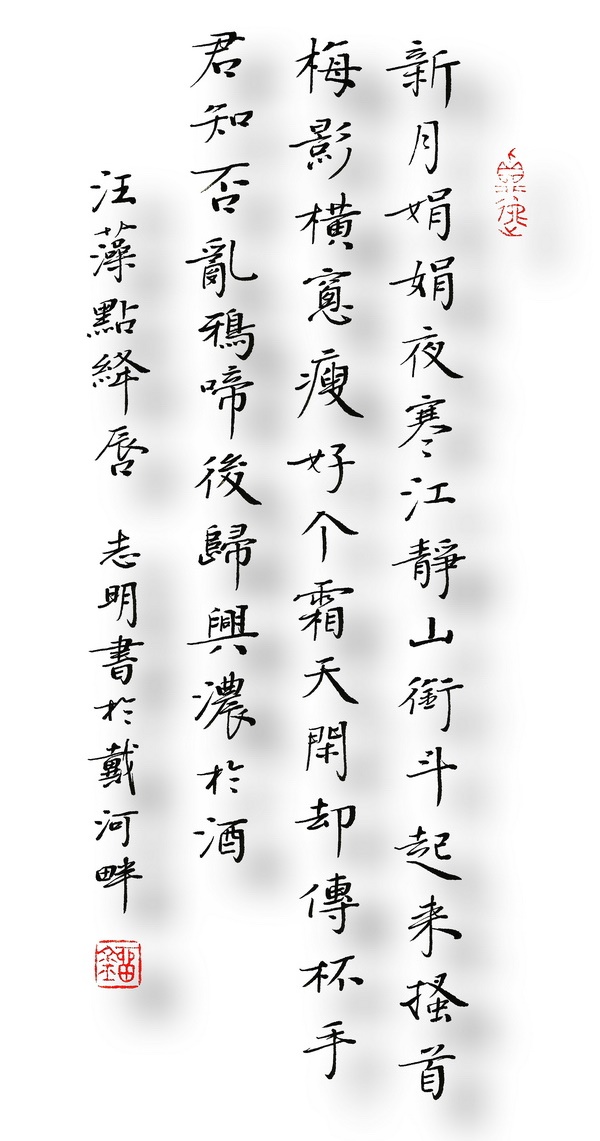 新月娟娟夜寒江靜山銜斗起来搔首
梅影橫窻瘦好个霜天閑却傳杯手
君知否亂鴉啼後歸興濃於酒
汪藻點絳唇 志明書於戴河畔